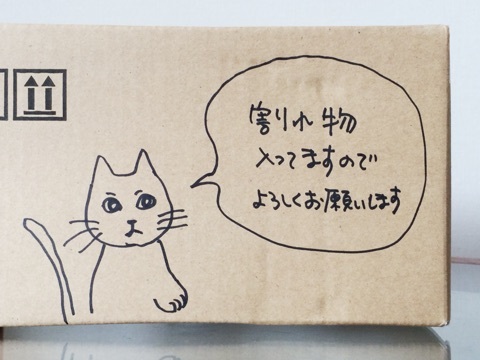 割れ物
入ってますので
よろしくお願いします